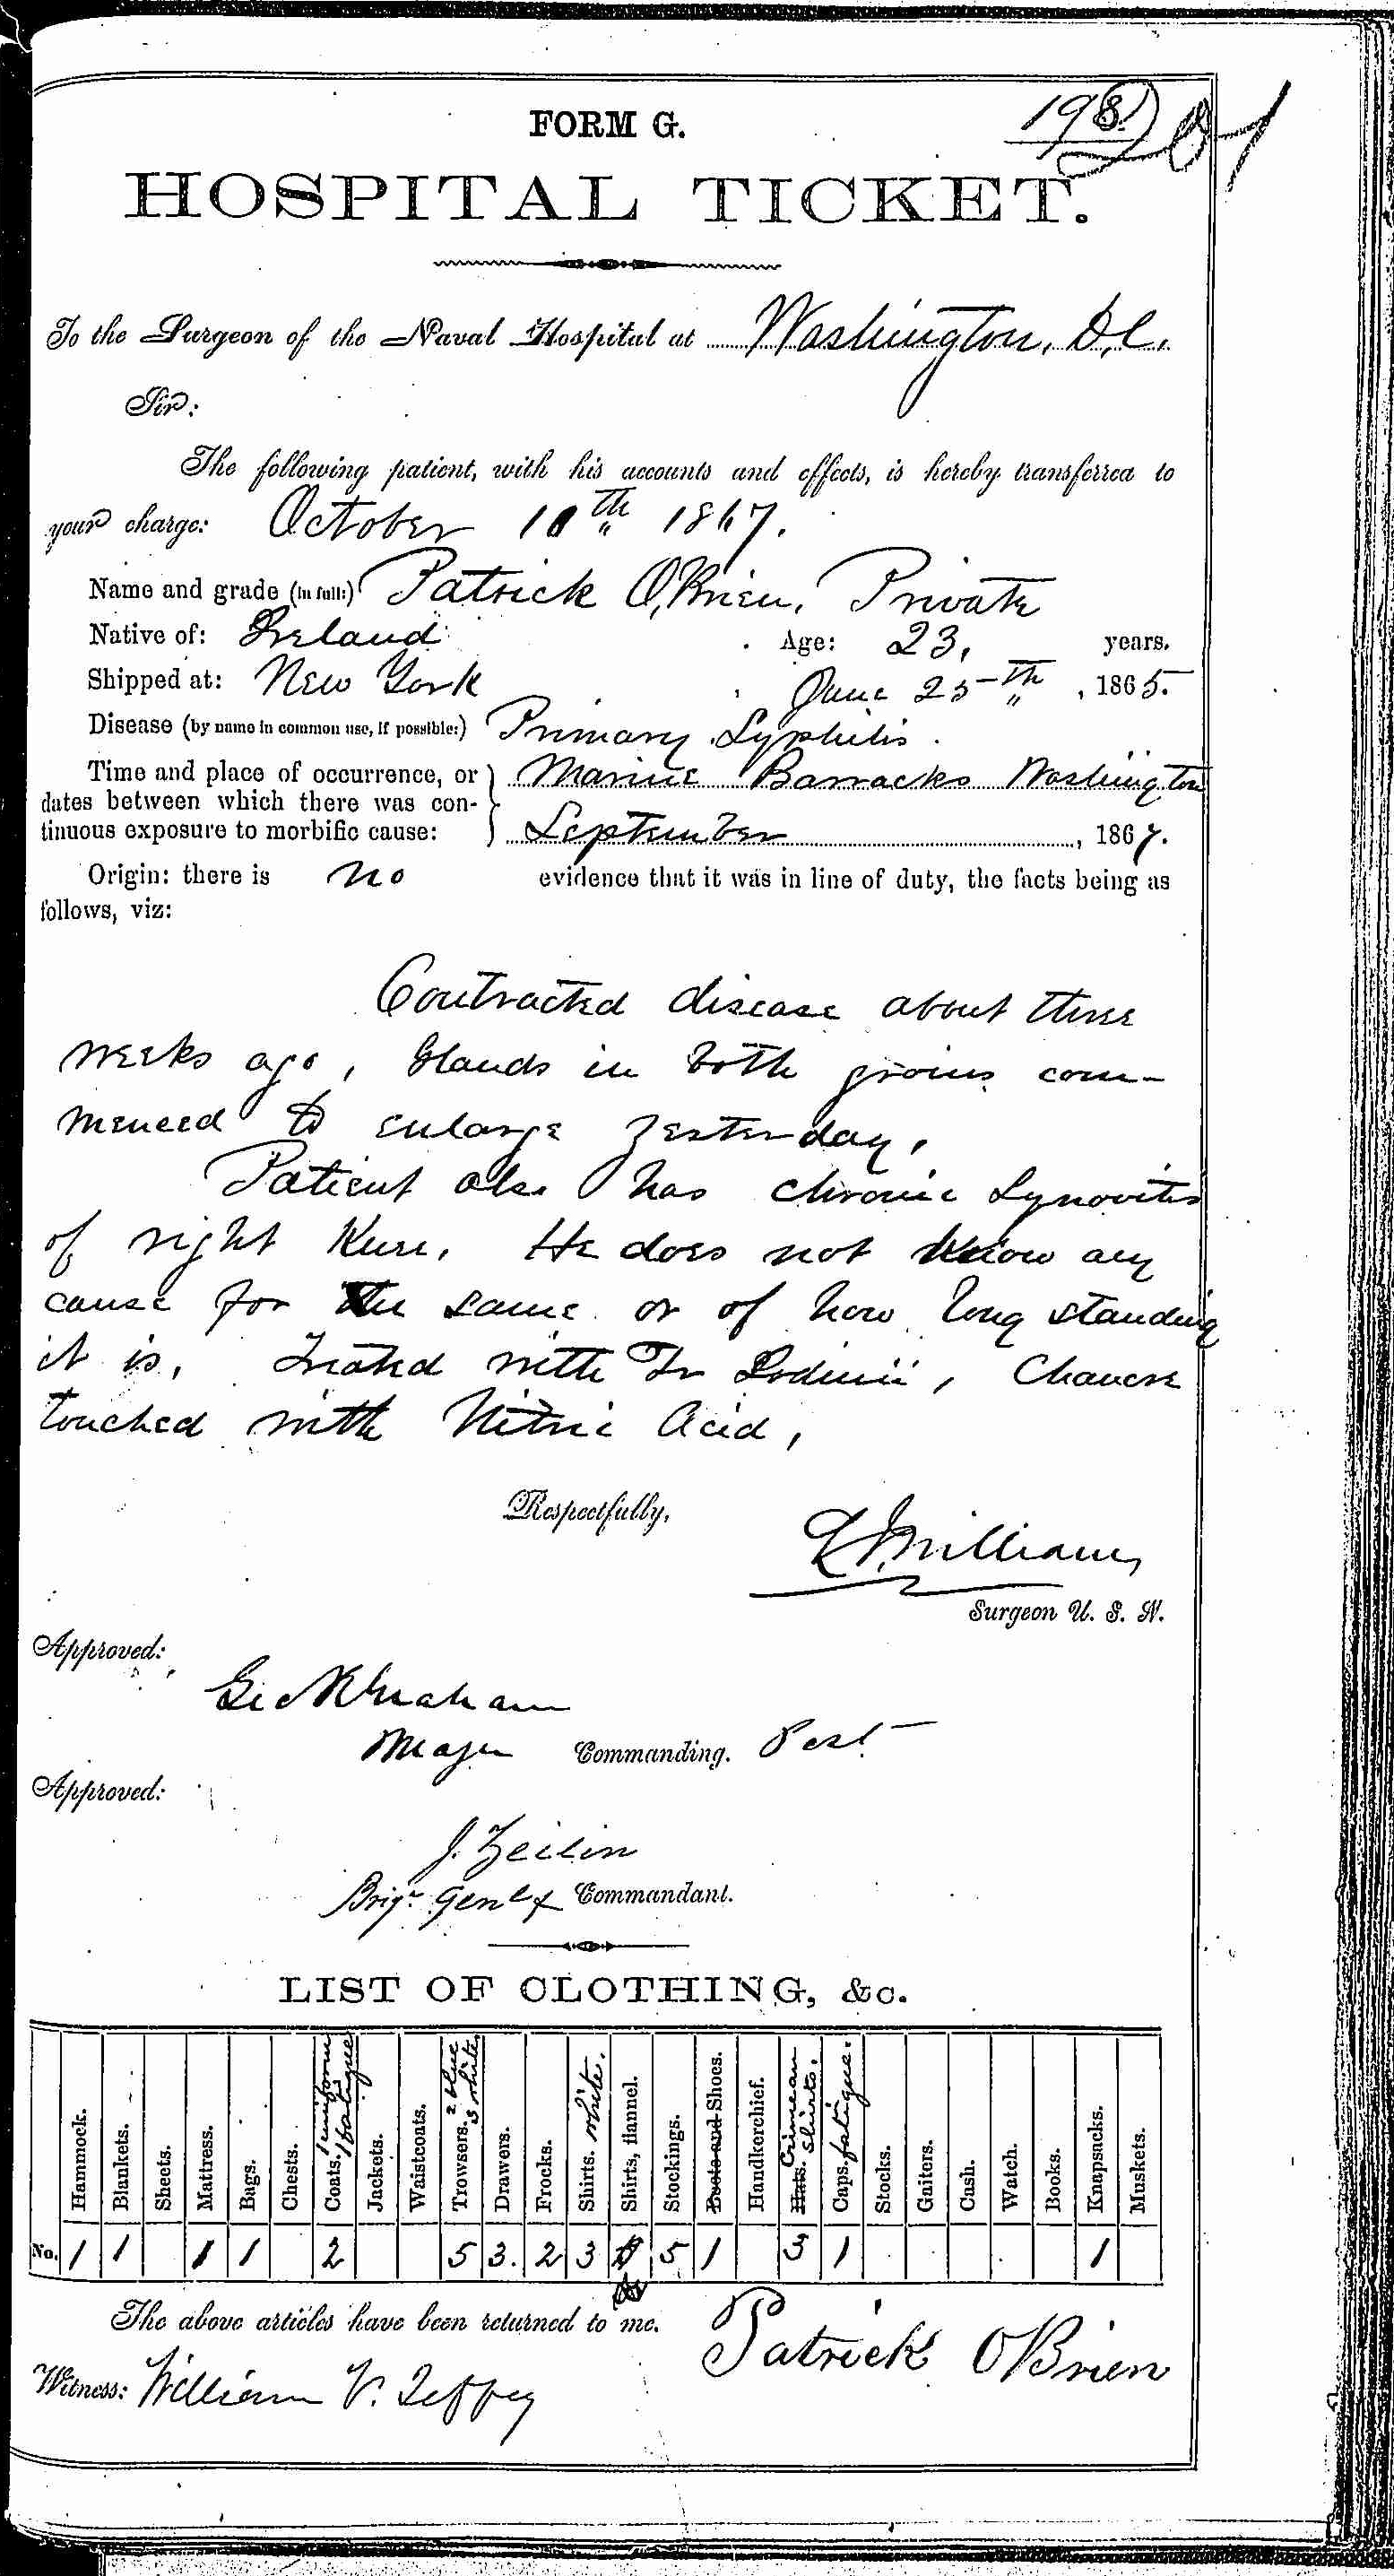 FORM G.
198. 201
HOSPITAL TICKET.
To the Surgeon of the Naval Hospital at Washington, D.C.
Sir:
The following patient, with his accounts and effects, is hereby transferred to
your charge: October 10th 1867.
Name and grade (in full:) Patrick O'Brien, Private
Native of: Ireland Age: 23, years.
Shipped at: New York June 25th, 1865.
Disease (by name in common use, if possible:) Primary Syphilis.
Time and place of occurrence, or Marine Barracks Washington
dates between which there was con-
tinuous exposure to morbific cause: September, 1867.
Origin: there is no evidence that it was in line of duty, the facts being as
follows, viz:
Contracted disease about three
weeks ago, Glands in both groins com-
menced to enlarge yesterday,
Patient also has chronic Synovitis
of right Knee. He does not know any
cause for the same or of how long standing
it is. Treated with Tr Iodinii, Chancre
touched with Nitric Acid,
Respectfully,
Williams
Surgeon U. S. N.
Approved:
Geo R Graham
Major Commanding. Post
Approved:
J. Zeilin
Brigr. Genl & Commandant.
LIST OF CLOTHING, &c.
Hammock. Blankets. Sheets. Mattress. Bags. Chests. Coats. 1 uniform 1 fatigue Jackets. Waistcoats. Trowsers. 2 blue 3 white. Drawers. Frocks. Shirts. white. Shirts, flannel. Stockings. Boots and Shoes. Handkerchief. Hats. Crimean Shirts. Caps. fatigue. Stocks. Gaiters. Cash. Watch. Books. Knapsacks. Muskets.
No. 1 1 1 1 2 5 3. 2 3 5 1 3 1 1
The above articles have been returned to me. Patrick O'Brien
Witness: William V. Jeffey